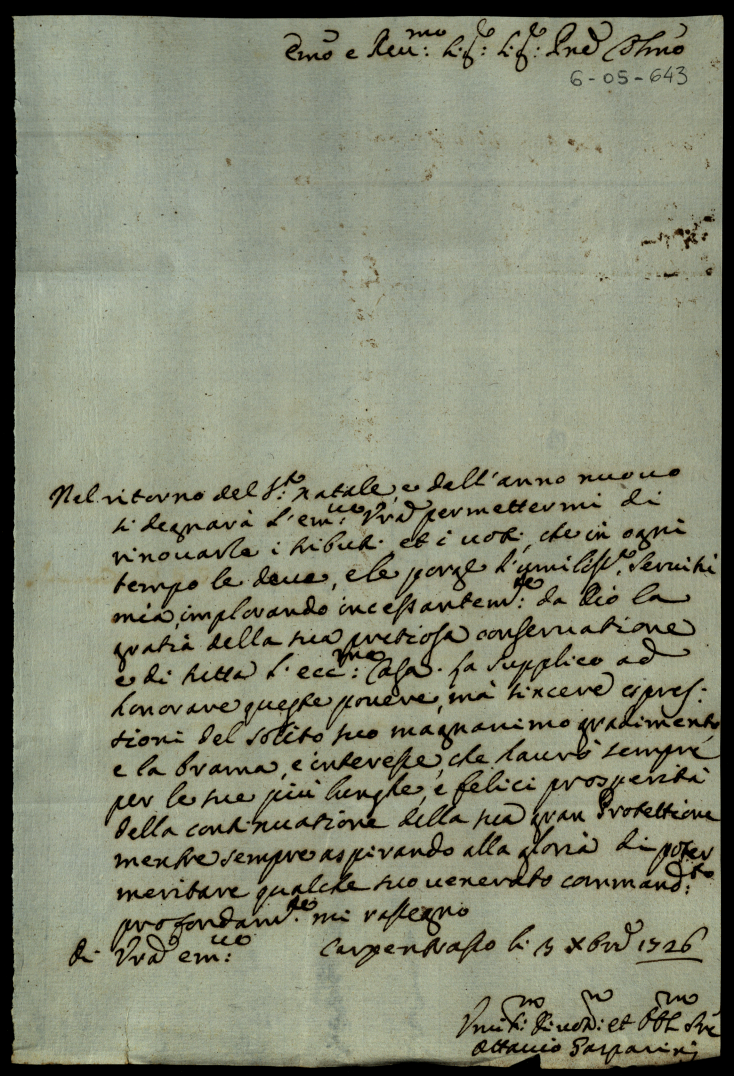 Emo e Reu:mo Sig:re Sig:re Pne Colmo
6-05-643
Nel ritorno del S:to Natale, e dell'anno nuouo
si degnarà l'em:ue Vra permettermi di
rinouarle i tributi, et i uoti, che in ogni
tempo le deue, e le porge l'umiliss:ma seruitù
mia, implorando incessantem:te da Dio la
gratia della sua pretiosa conseruatione
e di tutta l'ecc:ma Casa. La supplico ad
honorare queste pouere, mà sincere espres:
sioni del solito suo magnanimo gradimento,
e la brama, e interesse, che haurò sempre
per le sue più lunghe, e felici prosperità
della continuatione della sua gran Protettione
mentre sempre aspirando alla gloria di poter
meritare qualche suo uenerato command:to
profondam:te mi rassegno
di Vra em:ue Carpentrasso li 3 Xbre 1726
Umi:mo Diuot:mo et Obl:mo Sre
Ottauio Gasparini